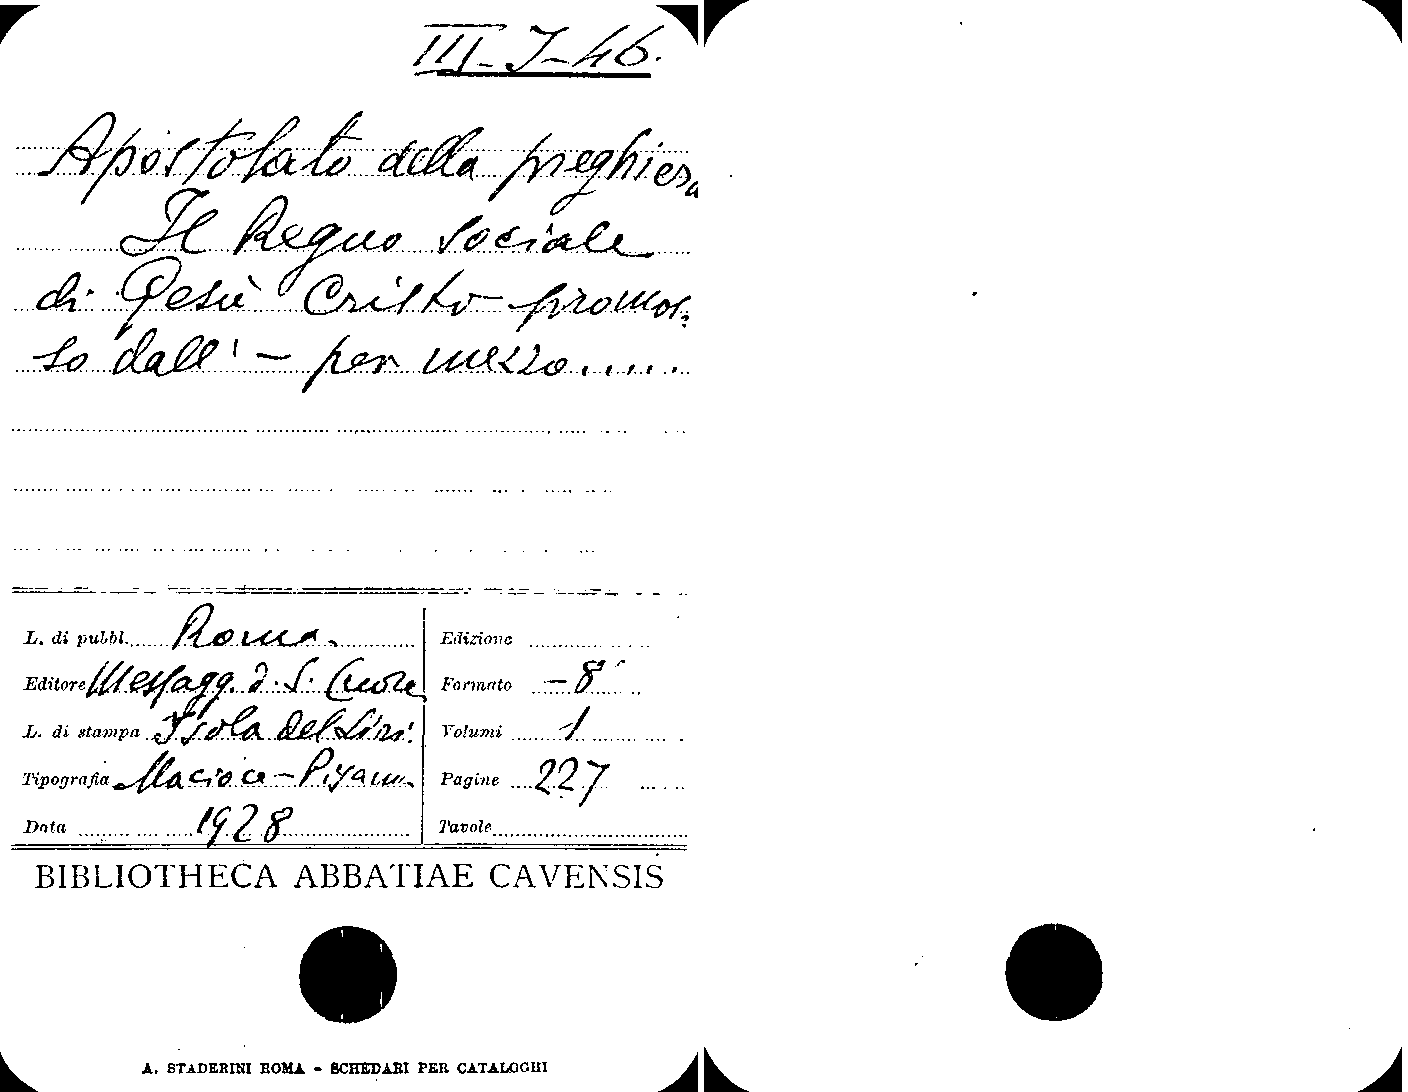 III-J-46.
Apostolato della preghiera
Il Regno sociale
di Gesù Cristo promos-
so dall' - per mezzo.....
L. di pubbl. Roma.
Editore Messagg. d. S. Cuore
L. di stampa Isola del Liri.
Tipografia Macioce-Pisani
Data 1928
Edizione
Formato -8°
Volumi 1
Pagine 227
Tavole
BIBLIOTHECA ABBATIAE CAVENSIS
A. STADERINI ROMA - SCHEDARI PER CATALOGHI